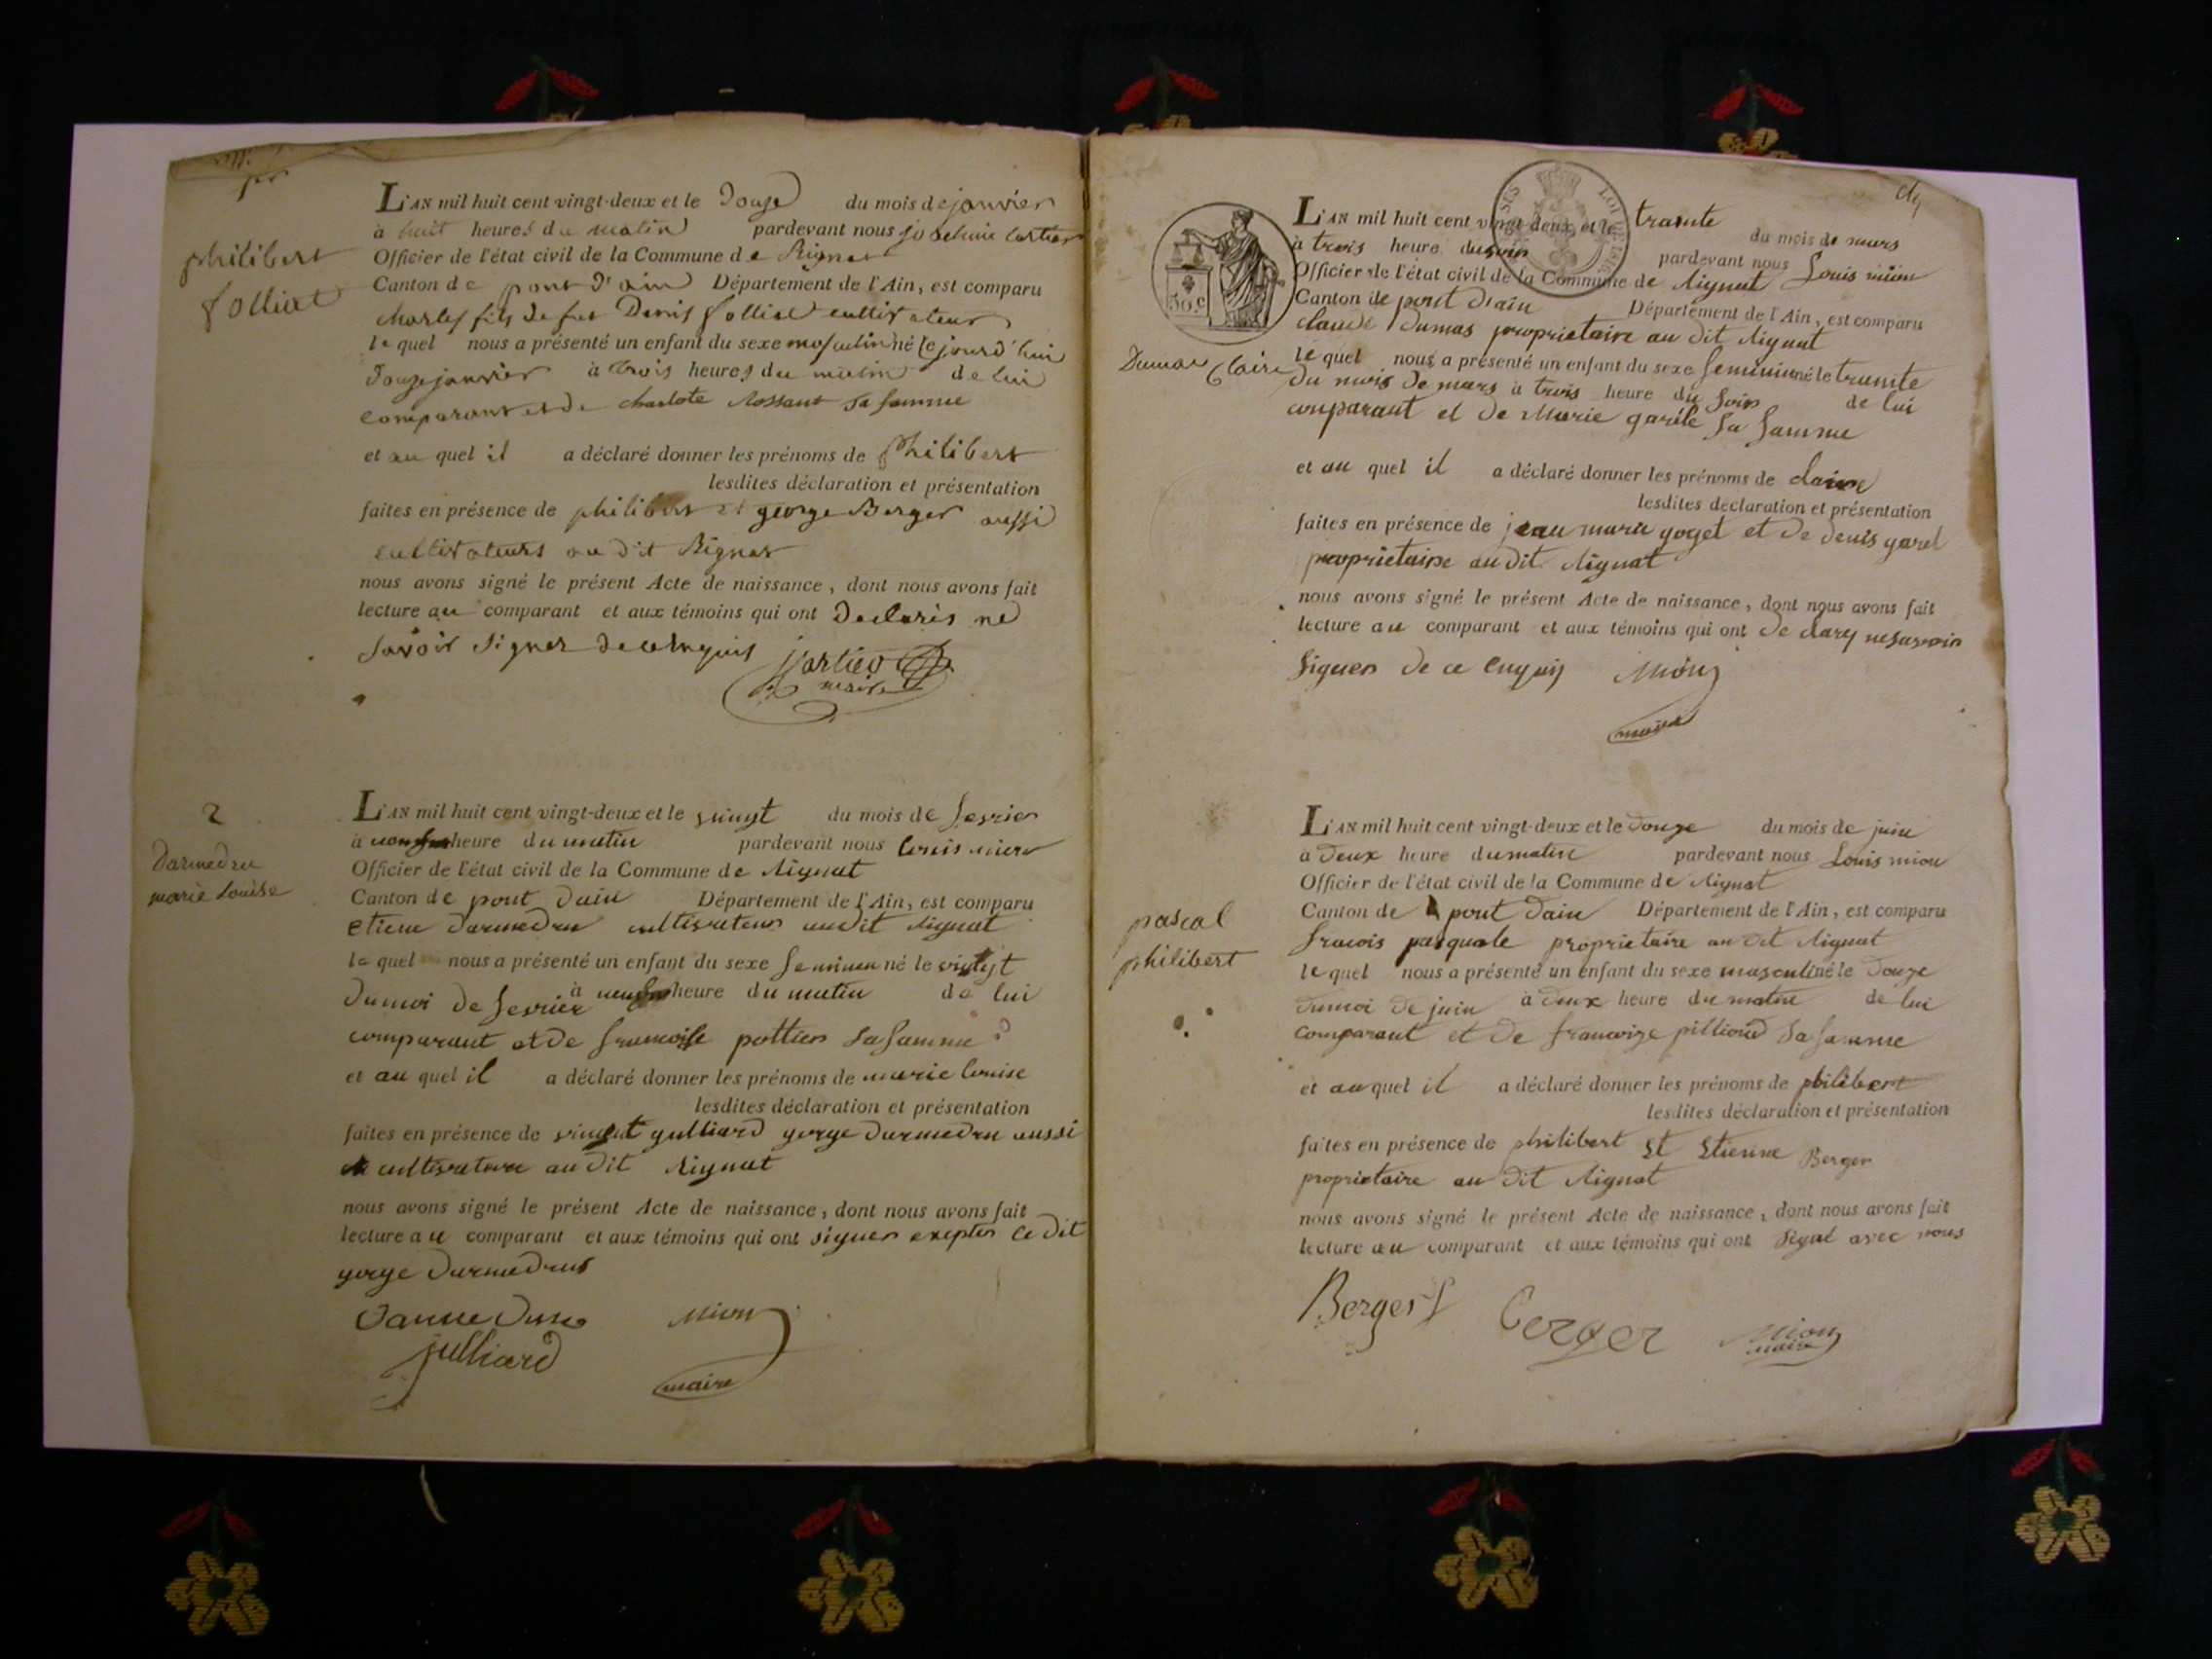 1er
philibert
folliat
L'AN mil huit cent vingt-deux et le Douze du mois de janvier
à huit heures du matin pardevant nous
Officier de l'état civil de la Commune de Rignat
Canton de pont d'ain Département de l'Ain, est comparu
Charles fils de feu Denis folliat cultivateur
le quel nous a présenté un enfant du sexe masculin né cejourd'hui
Douze janvier à trois heures du matin de lui
comparant et de charlote sa femme
et au quel il a déclaré donner les prénoms de Philibert
lesdites déclaration et présentation
faites en présence de philibert et george Berger aussi
cultivateurs au dit Rignat
nous avons signé le présent Acte de naissance, dont nous avons fait
lecture au comparant et aux témoins qui ont Declarés ne
savoir signer de ce enquis
maire
2
Darmedru
marie Louise
L'AN mil huit cent vingt-deux et le vingt du mois de fevrier
à heure du matin pardevant nous Louis mion
Officier de l'état civil de la Commune de Rignat
Canton de pont Dain Département de l'Ain, est comparu
etiene Darmedru cultivateur audit Rignat
le quel nous a présenté un enfant du sexe feminin né le
Dumoi De fevrier à heure du matin de lui
comparant et De francoise pottier sa famme
et au quel il a déclaré donner les prénoms de marie louise
lesdites déclaration et présentation
faites en présence de vincent gulliard gorge Darmedru aussi
cultivateur au Dit Rignat
nous avons signé le présent Acte de naissance, dont nous avons fait
lecture au comparant et aux témoins qui ont signer exepter le Dit
gorge Darmedrus
Darmedru Mion
julliard
maire
50 c
Dumas Claire
L'AN mil huit cent vingt-deux et le trante du mois de mars
à trois heure du soir pardevant nous Louis mion
Officier de l'état civil de la Commune de Rignat
Canton de pont Dain Département de l'Ain, est comparu
claude Dumas proprietaire au dit Rignat
le quel nous a présenté un enfant du sexe feminin né le trante
Du mois De mars à trois heure du soir de lui
comparant et De Marie sa famme
et au quel il a déclaré donner les prénoms de claire
lesdites déclaration et présentation
faites en présence de jean marie goget et De denis garel
proprietaire au dit Rignat
nous avons signé le présent Acte de naissance, dont nous avons fait
lecture au comparant et aux témoins qui ont De clarez ne savoir
signer De ce enquis Mion
maire
pascal
philibert
L'AN mil huit cent vingt-deux et le Douze du mois de juin
à Deux heure du matin pardevant nous Louis mion
Officier de l'état civil de la Commune de Rignat
Canton de pont Dain Département de l'Ain, est comparu
pasquale proprietaire au dit Rignat
le quel nous a présenté un enfant du sexe masculin né le Douze
Dumoi De juin à Deux heure du matin de lui
comparant et De francoize pilliond sa famme
et au quel il a déclaré donner les prénoms de philibert
lesdites déclaration et présentation
faites en présence de philibert et Etienne Berger
proprietaire au Dit Rignat
nous avons signé le présent Acte de naissance, dont nous avons fait
lecture au comparant et aux témoins qui ont signé avec nous
Berger Berger Mion
maire